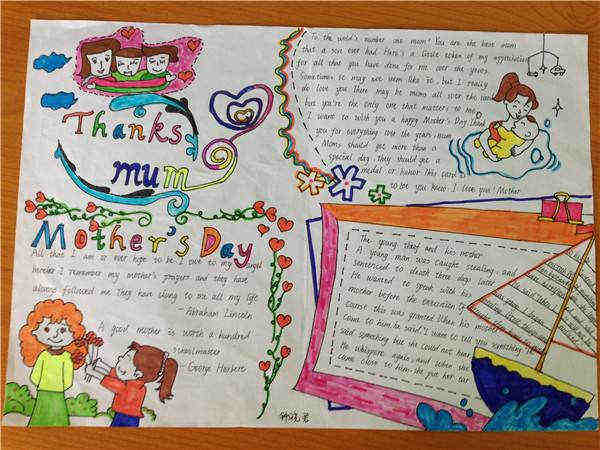 Thanks
mum
To the world's number one mum! You are the best mum
that a son ever had. Here's a little token of my appreciation
for all that you have done for me over the years.
Sometimes it may not seem like it, but I really
do love you. There may be mums all over the
but you're the only one that matters to me.
I want to wish you a happy Mother's Day.
you for everything over the years mum
Moms should get more than a
special day. They should get a
medal or honor. This card is
to let you know: I love you! Mother.
Mother's Day
All that I am or ever hope to be I owe to my angel
mother I remember my mother's prayers and they have
always followed me They have clung to me all my life
— Abraham Lincoln
A good mother is worth a hundred
schoolmaster
— George Herbert
The young thief and his mother
A young man was caught stealing and
sentenced to death three days later
He wanted to speak with his
mother before the execution. Of
course this was granted. When his mother
came to him he said "I want to tell you something"
said something but she could not hear.
He whispered again, and when she
came close to him, she put her ear